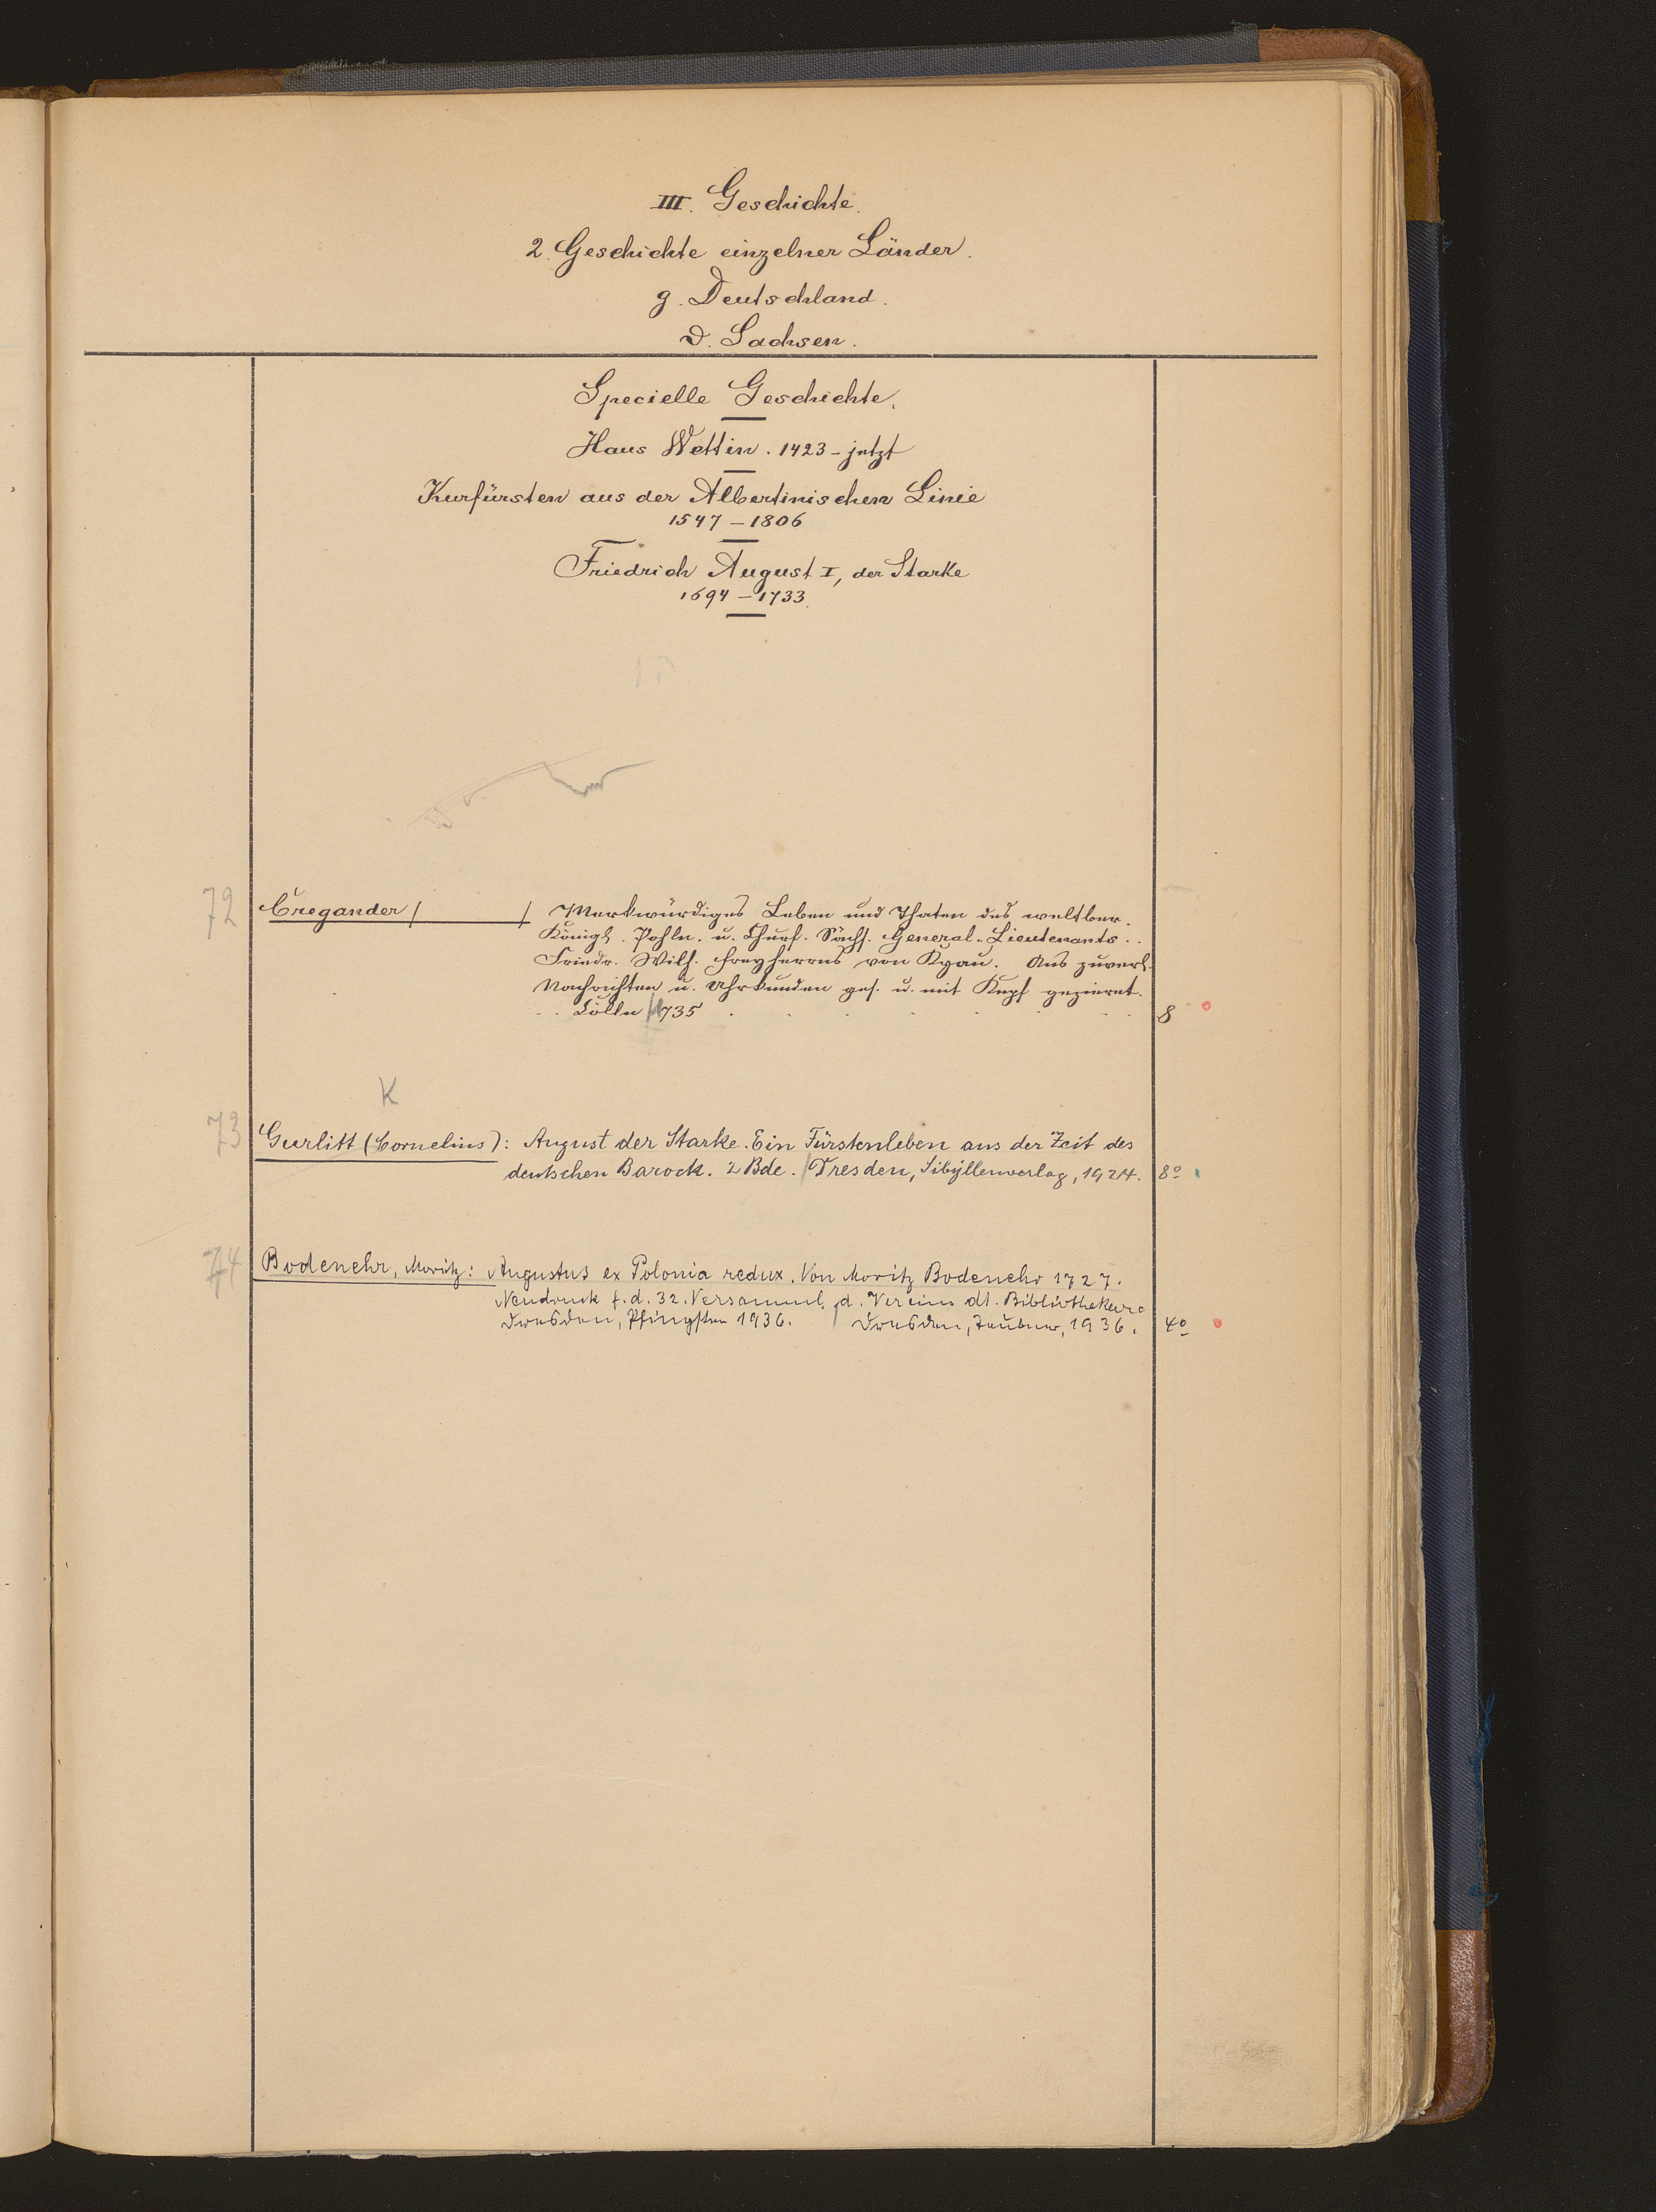 III. Geschichte.
2. Geschichte einzelner Länder.
g. Deutschland.
D. Sachsen.
Specielle Geschichte.
Haus Wettin. 1423 - jetzt
Kurfürsten aus der Albertinischen Linie
1547 - 1806
Friedrich August I, der Starke
1694 - 1733.
72 Cregander / / Merkwürdiges Leben und Thaten des weltber.
Königl. Pohln. u. Churf. Sächs. General-Lieutenants..
Friedr. Wilh. Freyherrns von Kyau. Aus zuverl.
Nachrichten u. Uhrkunden ges. u. mit Kupf gezieret.
.. Cölln 1735 8
K
73 Gurlitt (Cornelius): August der Starke. Ein Fürstenleben aus der Zeit des
deutschen Barock. 2 Bde. / Dresden, Sibyllenverlag, 1924. 8°
74 Bodenehr, Moritz: Augustus ex Polonia redux. Von Moritz Bodenehr 1727.
Neudruck f. d. 32. Versamml. d. Vereins dt. Bibliothekare
Dresden, Pfingsten 1936. / Dresden, Teubner, 1936. 4°